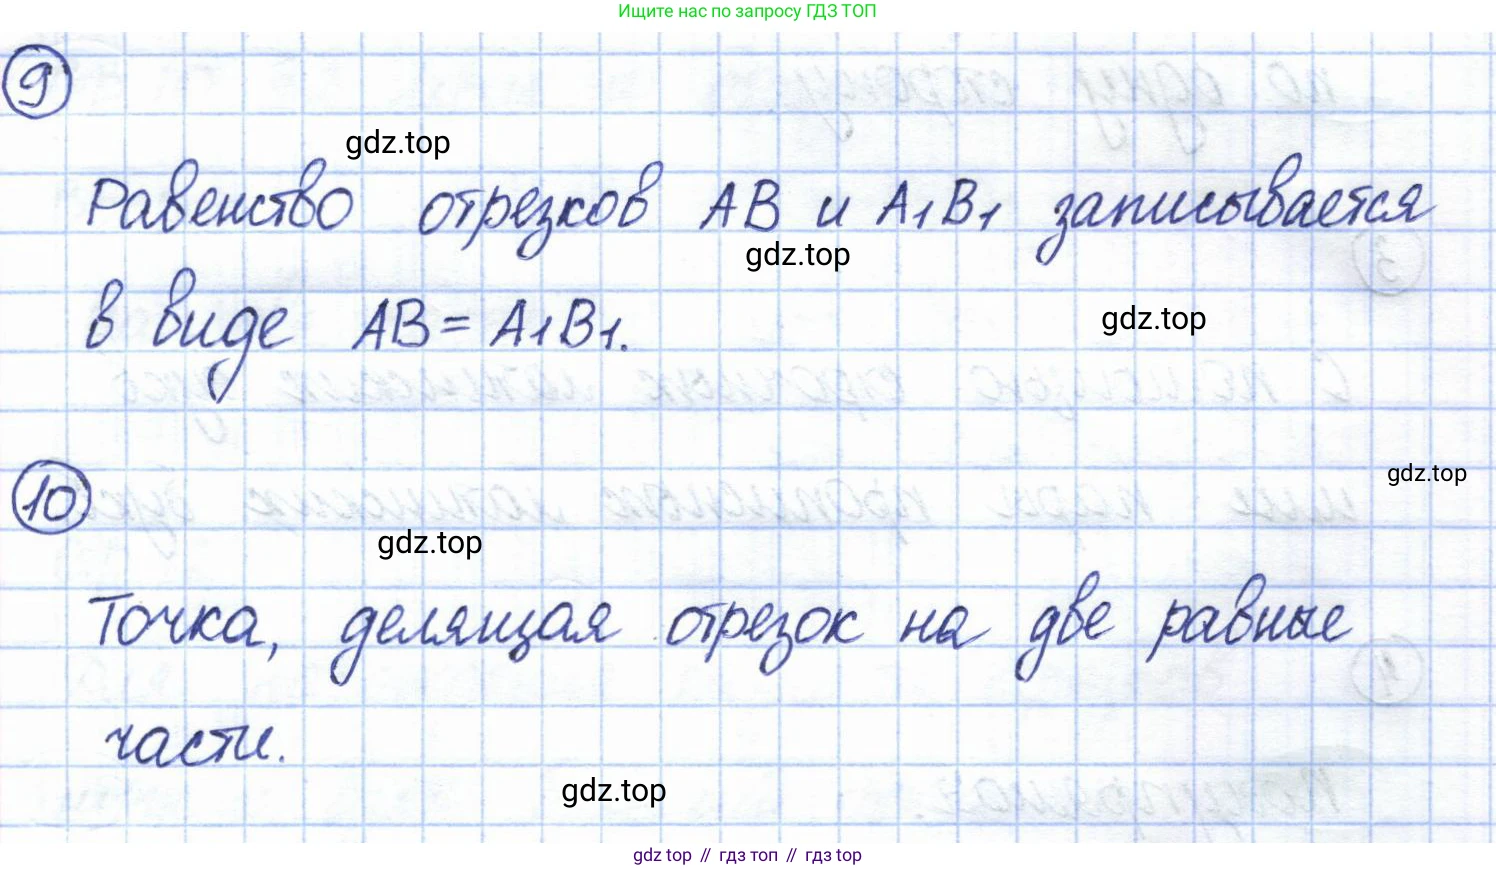 Ищите нас по запросу ГДЗ ТОП
9
gdz.top
Равенство отрезков AB и A₁B₁ записывается
gdz.top
в виде AB = A₁B₁.
gdz.top
gdz.top
10
gdz.top
Точка, делящая отрезок на две равные
части.
gdz.top
gdz top // гдз топ // гдз top